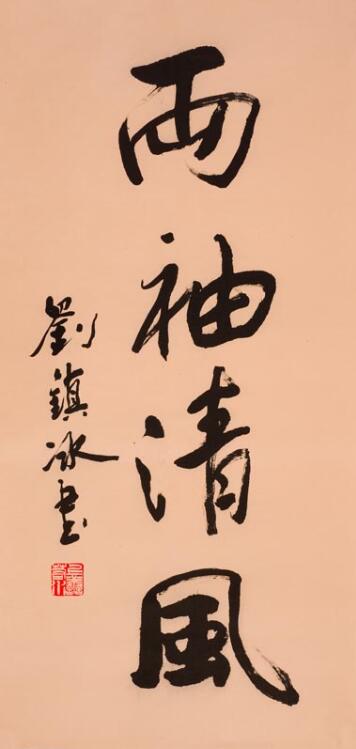 兩袖清風
劉鎮冰書